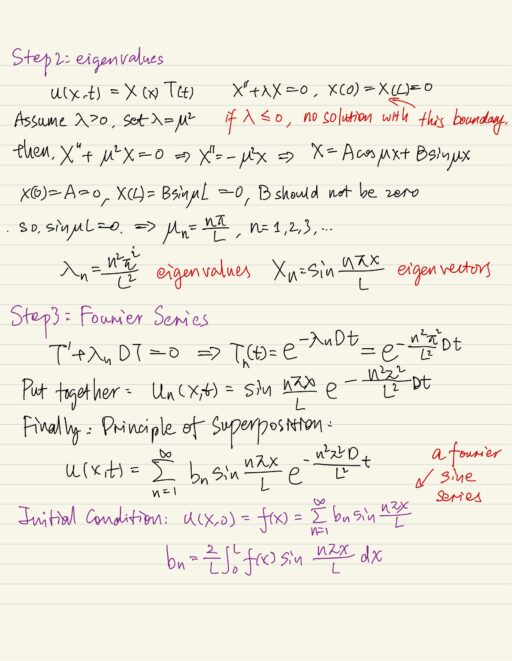 Step2: eigenvalues
u(x,t) = X(x) T(t)   X''+λX=0, X(0)=X(L)=0
Assume λ>0, set λ=μ²   if λ≤0, no solution with this boundary.
then, X''+μ²X=0 ⇒ X''=-μ²x ⇒ X=Acosμx+Bsinμx
X(0)=A=0, X(L)=BsinμL=0, B should not be zero
so, sinμL=0. ⇒ μₙ=nπ/L, n=1,2,3,...
λₙ=n²π²/L² eigenvalues   Xₙ=sin nπx/L eigenvectors
Step3: Fourier Series
T'+λₙDT=0 ⇒ Tₙ(t)=e^(-λₙDt)=e^(-n²π²/L² Dt)
Put together: uₙ(x,t)=sin nπx/L e^(-n²π²/L² Dt)
Finally: Principle of Superposition:
u(x,t)=∑_{n=1}^{∞} bₙ sin nπx/L e^(-n²π²D/L² t)
a fourier
sine
series
Initial Condition: u(x,0)=f(x)=∑_{n=1}^{∞} bₙ sin nπx/L
bₙ=2/L ∫₀ᴸ f(x) sin nπx/L dx